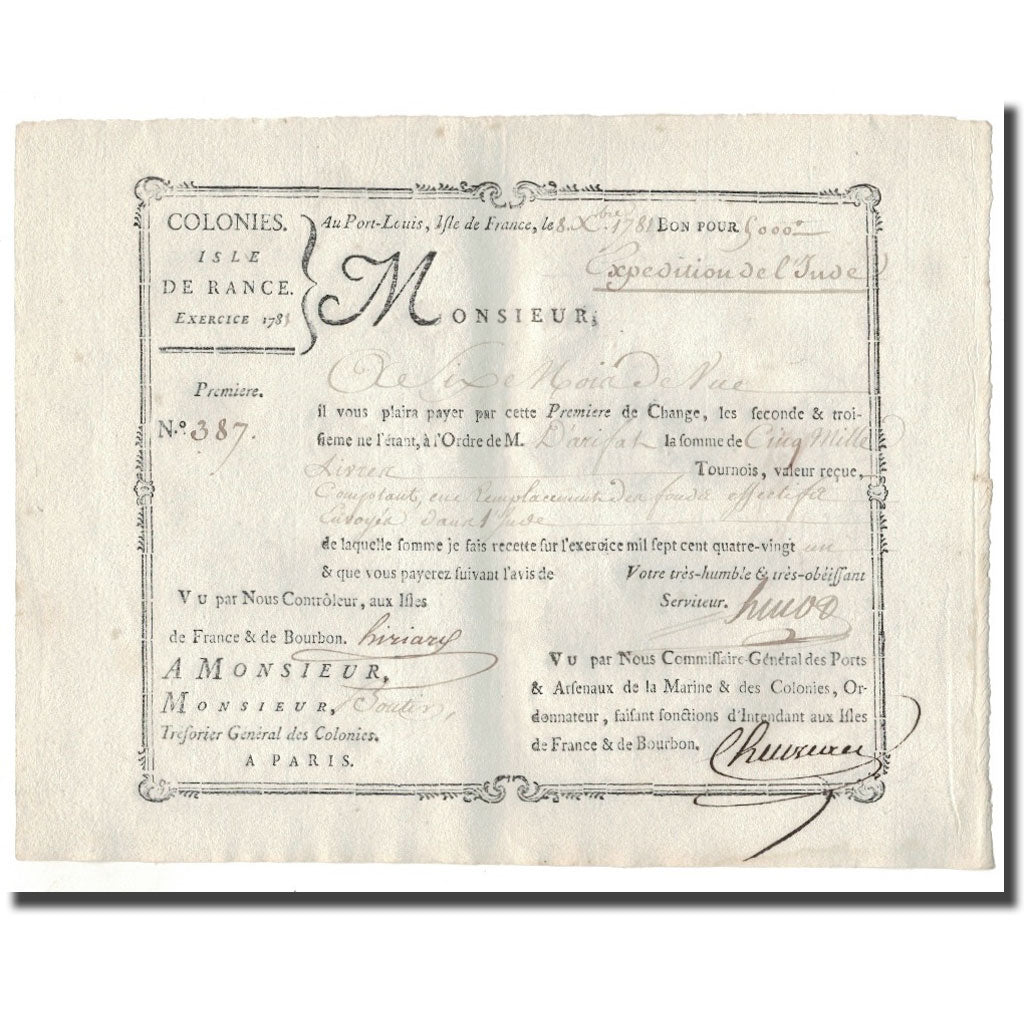 COLONIES.
ISLE
DE RANCE.
EXERCICE 1781
Au Port-Louis, Isle de France, le 8. Xbre. 1781 BON POUR 5000tt
Expedition de l'Inde
MONSIEUR,
Premiere.
N.º 387.
A Six Mois de Vue
il vous plaira payer par cette Premiere de Change, les seconde & troi-
sieme ne l'étant, à l'Ordre de M. Darifat la somme de Cinq Mille
Livres Tournois, valeur reçue,
Comptant, en Remplacement des fonds effectifs
Envoyés dans l'Inde
de laquelle somme je fais recette sur l'exercice mil sept cent quatre-vingt un
& que vous payerez suivant l'avis de Votre très-humble & très-obéissant
Serviteur.
VU par Nous Contrôleur, aux Isles
de France & de Bourbon. hiriart
A MONSIEUR,
MONSIEUR, Boutin,
Tresorier Général des Colonies.
A PARIS.
VU par Nous Commissaire-Général des Ports
& Arsenaux de la Marine & des Colonies, Or-
donnateur, faisant fonctions d'Intendant aux Isles
de France & de Bourbon. Chevreau